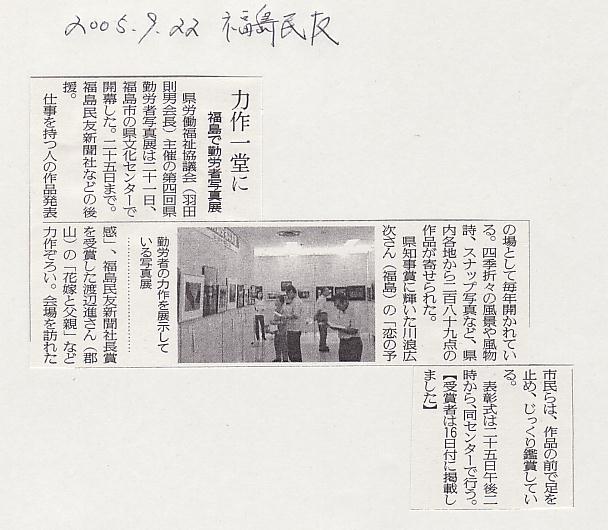 2005.9.22 福島民友
力作一堂に
福島で勤労者写真展
県労働福祉協議会（羽田
則男会長）主催の第四回県
勤労者写真展は二十一日、
福島市の県文化センターで
開幕した。二十五日まで。
福島民友新聞社などの後
援。
仕事を持つ人の作品発表
の場として毎年開かれてい
る。四季折々の風景や風物
詩、スナップ写真など、県
内各地から二百八十九点の
作品が寄せられた。
県知事賞に輝いた川浪広
次さん（福島）の「恋の予
感」、福島民友新聞社長賞
を受賞した渡辺進さん（郡
山）の「花嫁と父親」など
力作ぞろい。会場を訪れた
勤労者の力作を展示して
いる写真展
市民らは、作品の前で足を
止め、じっくり鑑賞してい
る。
表彰式は二十五日午後二
時から、同センターで行う。
【受賞者は16日付に掲載し
ました】